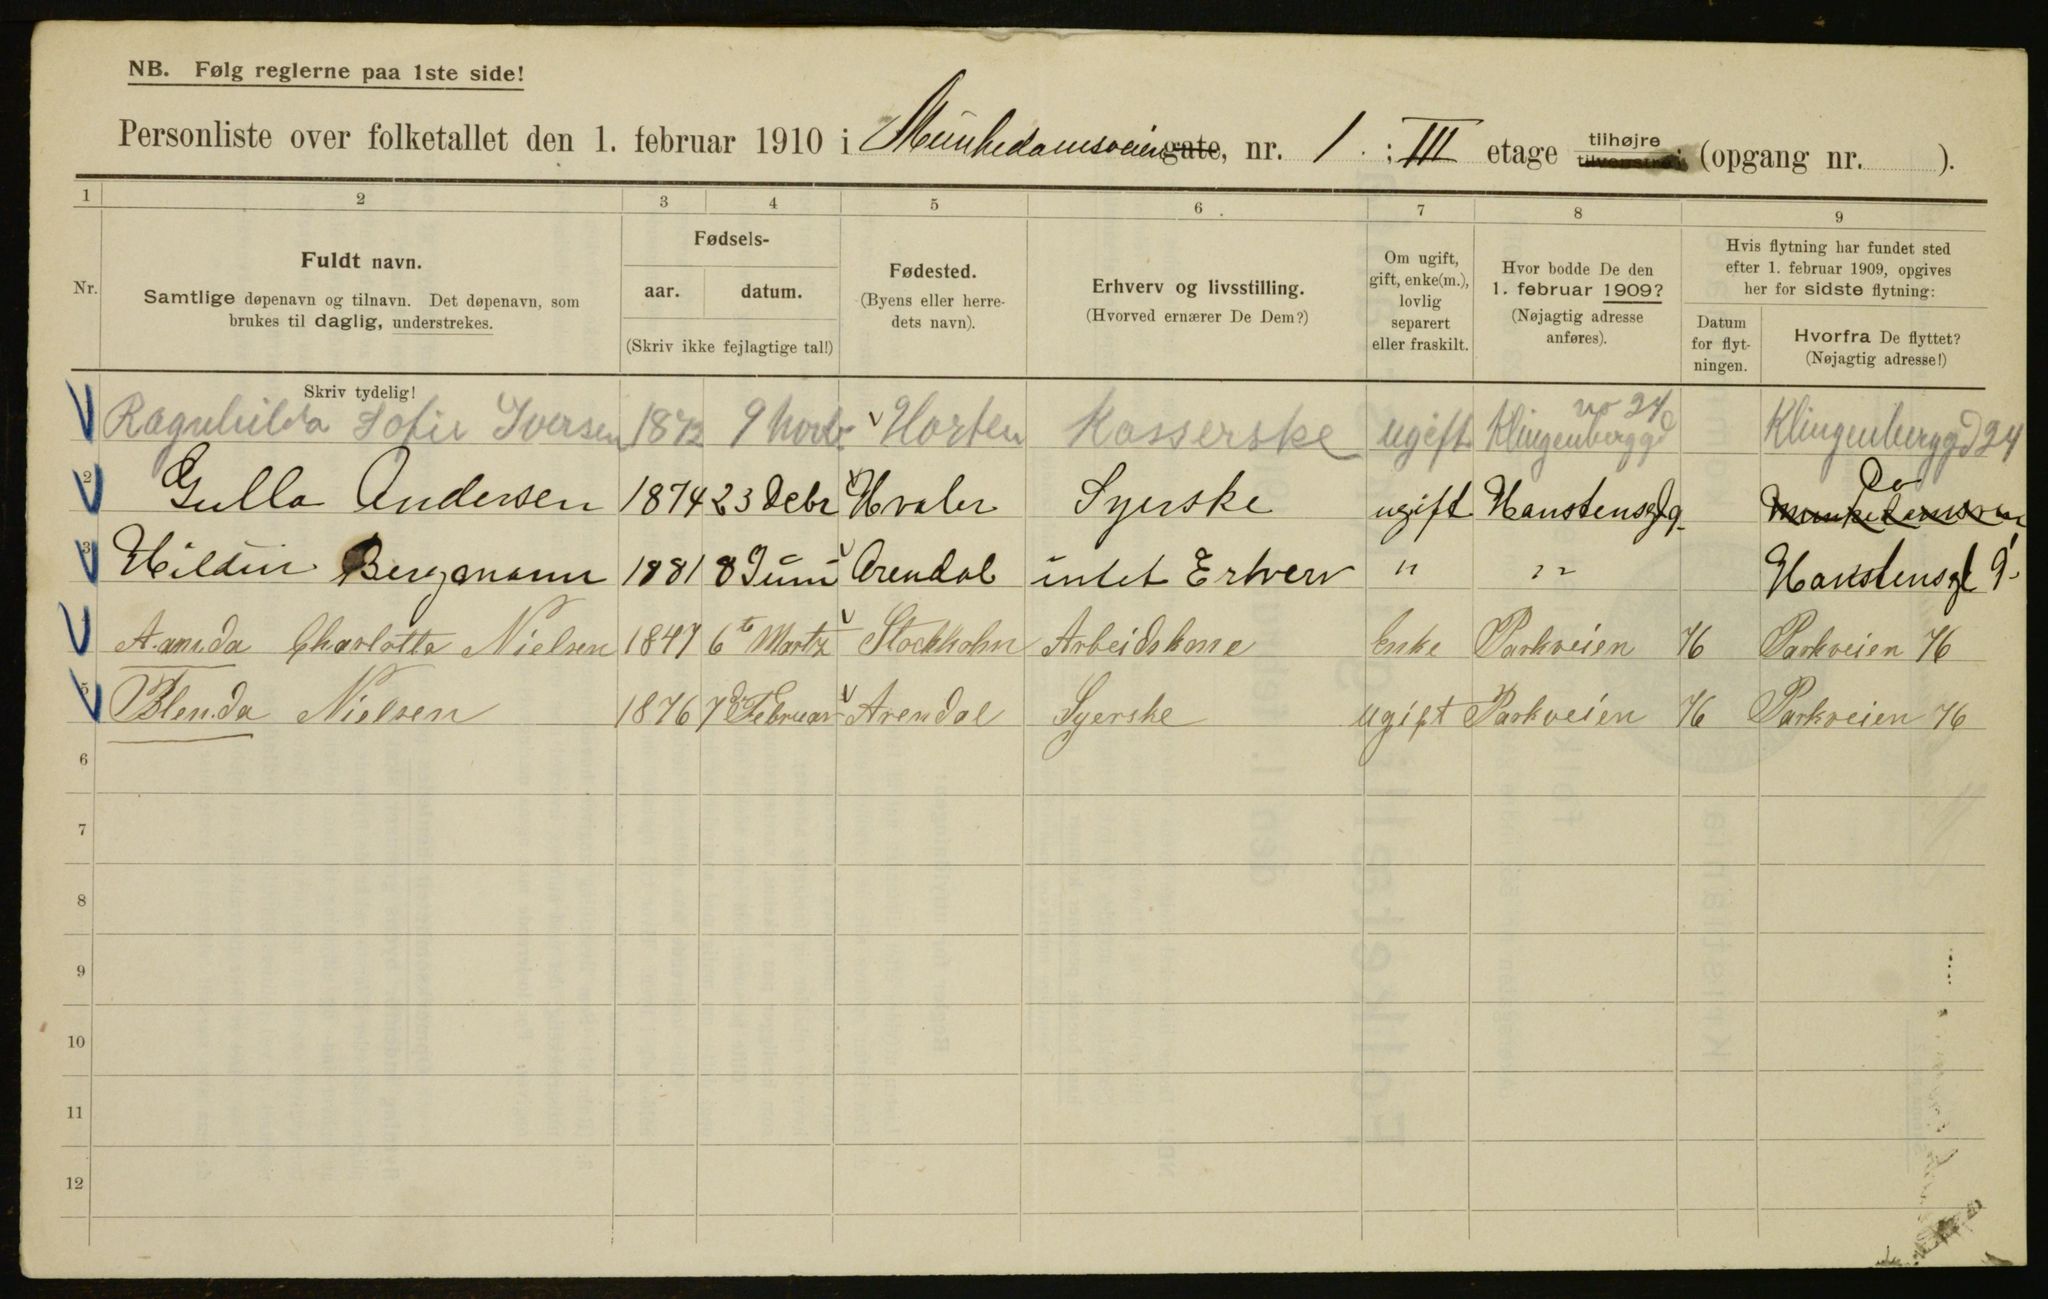 NB. Følg reglerne paa 1ste side!
Personliste over folketallet den 1. februar 1910 i Munkedamsveien gate, nr. 1 : III etage tilhøjre tilvenstre (opgang nr. ).
1 2 3 4 5 6 7 8 9
Nr.
Fuldt navn.
Samtlige døpenavn og tilnavn. Det døpenavn, som
brukes til daglig, understrekes.
Fødsels-
aar. datum.
(Skriv ikke fejlagtige tal!)
Fødested.
(Byens eller herre-
dets navn).
Erhverv og livsstilling.
(Hvorved ernærer De Dem?)
Om ugift,
gift, enke(m.),
lovlig
separert
eller fraskilt.
Hvor bodde De den
1. februar 1909?
(Nøjagtig adresse
anføres).
Hvis flytning har fundet sted
efter 1. februar 1909, opgives
her for sidste flytning:
Datum
for flyt-
ningen.
Hvorfra De flyttet?
(Nøjagtig adresse!)
Skriv tydelig!
Ragnhilda Sofie Iversen 1872 9 Horten Kasserske ugift Klingenberggd no 24 Klingenberggd 24
2 Gulla Andersen 1874 23 Debr Hvaler Syerske ugift Hanstensgd 9 Do Munkedamsveien
3 Bergmann 1881 8 Juni Arendal intet Erhverv " " Hanstensgt 9
Amanda Charlotta Nielsen 1847 6te Martz Stockholm Arbeidskone Enke Parkveien 76 Parkveien 76
5 Blenda Nielsen 1876 7de Februar Arendal Syerske ugift Parkveien 76 Parkveien 76
6
7
8
9
10
11
12